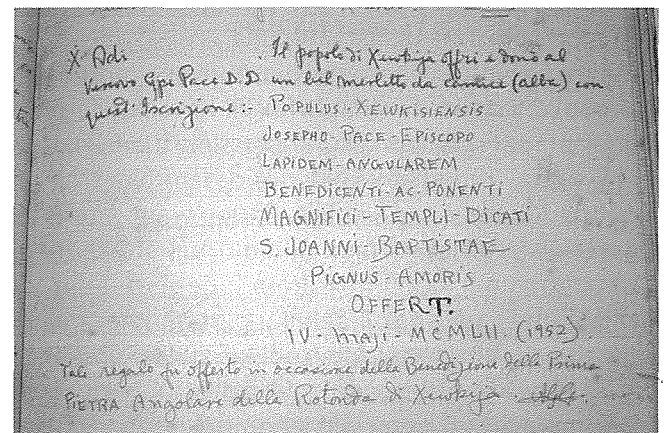 X. Adi . Il popolo di Xewkija offrì e donò al
Vescovo Gpe Pace D.D un bel merletto da camice (alba) con
quest' Iscrizione :- POPULUS · XEWKISIENSIS
JOSEPHO - PACE - EPISCOPO
LAPIDEM - ANGULAREM
BENEDICENTI - AC - PONENTI
MAGNIFICI - TEMPLI - DICATI
S. JOANNI - BAPTISTAE
PIGNUS - AMORIS
OFFERT.
IV - Maji - MCMLII. (1952)
Tale regalo fu offerto in occasione della Benedizione della Prima
PIETRA Angolare della Rotonda di Xewkija.